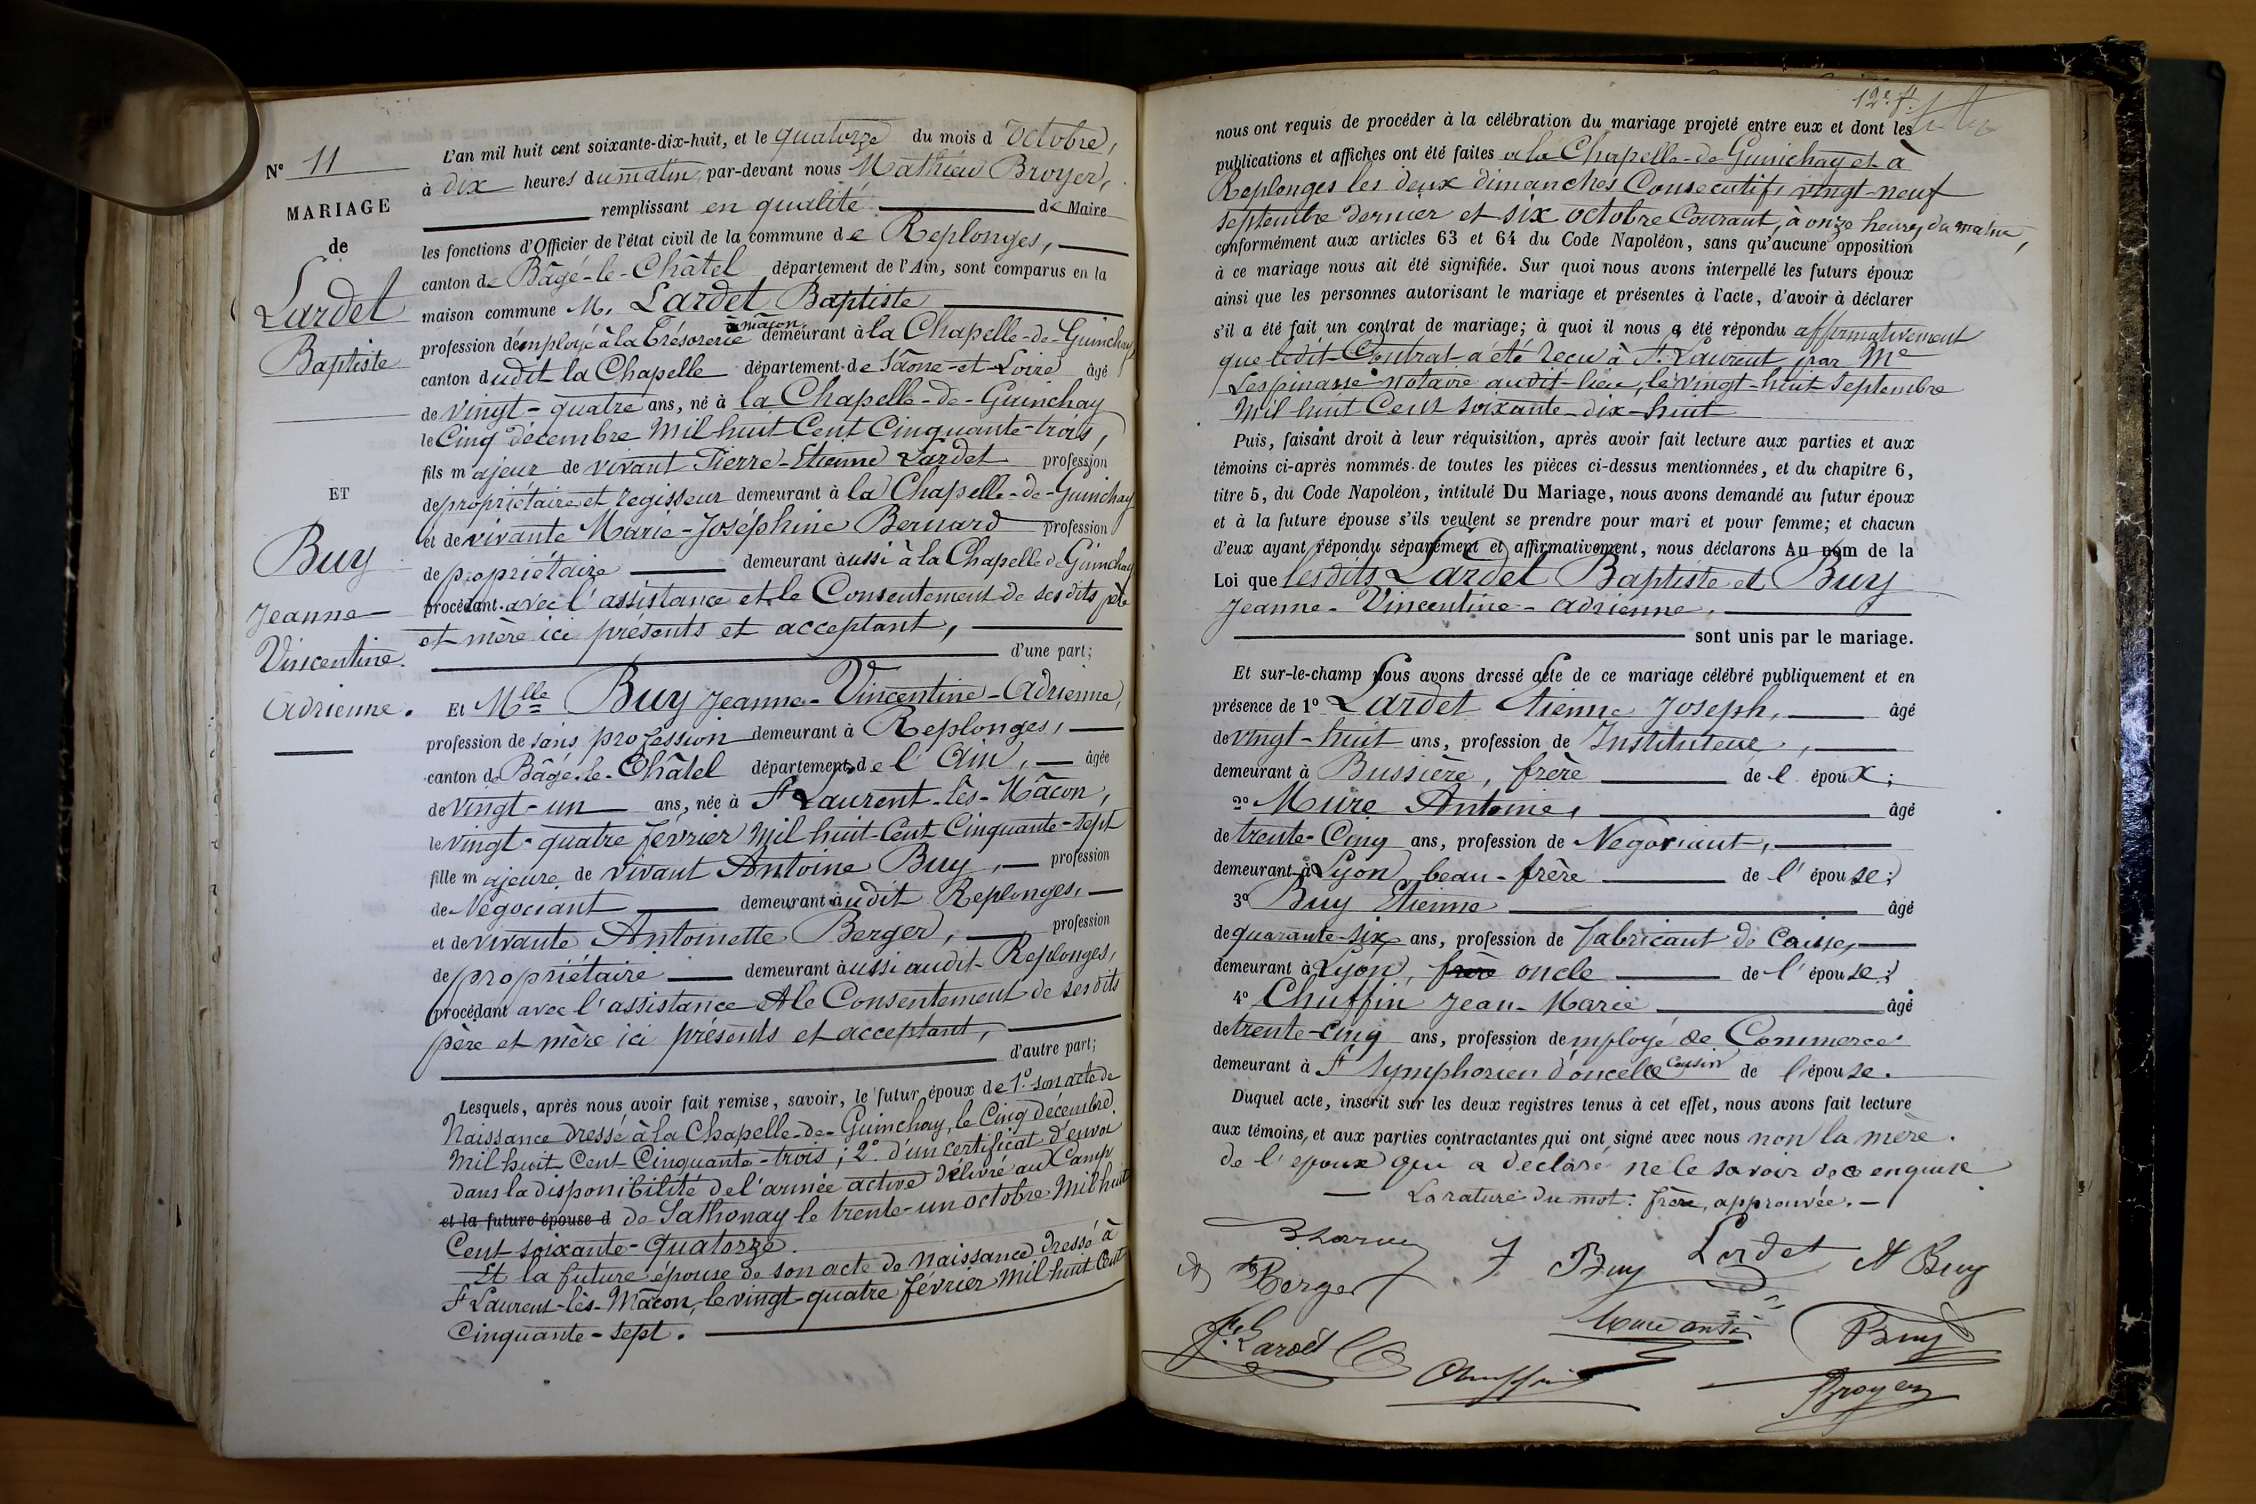 N° 11
MARIAGE
de
Lardet
Baptiste
ET
Buy
Jeanne
Vincentine
Adrienne.
L'an mil huit cent soixante-dix-huit, et le quatorze du mois d'octobre,
à dix heures du matin, par-devant nous Mathieu Broyer,
remplissant en qualité de Maire
les fonctions d'Officier de l'état civil de la commune de Replonges,
canton de Bâgé-le-Châtel département de l'Ain, sont comparus en la
maison commune M. Lardet Baptiste
profession d'employé à la Trésorerie à mâcon, demeurant à la Chapelle-de-Guinchay
canton dudit la Chapelle département de Saone-et-Loire âgé
de vingt-quatre ans, né à la Chapelle-de-Guinchay
le Cinq décembre Mil huit Cent Cinquante-trois,
fils majeur de vivant Pierre-Etienne Lardet profession
de propriétaire et regisseur demeurant à la Chapelle-de-Guinchay
et de vivante Marie-Joséphine Bernard profession
de propriétaire demeurant aussi à la Chapelle de Guinchay
procédant avec l'assistance et le Consentement de ses dits père
et mère ici présents et acceptant,
d'une part;
Et Mlle Buy Jeanne-Vincentine-Adrienne,
profession de sans profession demeurant à Replonges,
canton de Bâgé-le-Châtel département de l'Ain, âgée
de vingt-un ans, née à St Laurent-lès-Mâcon,
le vingt-quatre février Mil huit Cent Cinquante-sept
fille majeure de vivant Antoine Buy, profession
de Négociant demeurant audit Replonges,
et de vivante Antoinette Berger, profession
de propriétaire demeurant aussi audit Replonges,
procédant avec l'assistance et le Consentement de ses dits
père et mère ici présents et acceptant,
d'autre part;
Lesquels, après nous avoir fait remise, savoir, le futur époux de 1°. son acte de
Naissance dressé à la Chapelle-de-Guinchay, le Cinq décembre
Mil huit Cent Cinquante-trois; 2° d'un certificat d'envoi
dans la disponibilité de l'armée active délivré au Camp
et la future épouse d de Sathonay le trente-un octobre Mil huit
Cent soixante-quatorze.
Et la future épouse de son acte de Naissance dressé à
St Laurent-lès-Mâcon, le vingt-quatre février Mil huit Cent
Cinquante-sept.
12e f.
nous ont requis de procéder à la célébration du mariage projeté entre eux et dont les
publications et affiches ont été faites à la Chapelle-de-Guinchay et à
Replonges les deux dimanches Consecutifs vingt-neuf
septembre dernier et six octobre Courant, à onze heures du matin,
conformément aux articles 63 et 64 du Code Napoléon, sans qu'aucune opposition
à ce mariage nous ait été signifiée. Sur quoi nous avons interpellé les futurs époux
ainsi que les personnes autorisant le mariage et présentes à l'acte, d'avoir à déclarer
s'il a été fait un contrat de mariage; à quoi il nous a été répondu affirmativement
que ledit Contrat a été reçu à St. Laurent par Me
Lespinasse notaire audit lieu, le vingt-huit septembre
Mil huit Cent soixante-dix-huit
Puis, faisant droit à leur réquisition, après avoir fait lecture aux parties et aux
témoins ci-après nommés de toutes les pièces ci-dessus mentionnées, et du chapitre 6,
titre 5, du Code Napoléon, intitulé Du Mariage, nous avons demandé au futur époux
et à la future épouse s'ils veulent se prendre pour mari et pour femme; et chacun
d'eux ayant répondu séparément et affirmativement, nous déclarons Au nom de la
Loi que lesdits Lardet Baptiste et Buy
Jeanne-Vincentine-Adrienne,
sont unis par le mariage.
Et sur-le-champ nous avons dressé acte de ce mariage célébré publiquement et en
présence de 1° Lardet Etienne Joseph, âgé
de vingt-huit ans, profession de Instituteur,
demeurant à Bussière, frère de l'époux;
2° Mure Antoine, âgé
de trente-Cinq ans, profession de Négociant,
demeurant à Lyon beau-frère de l'épouse;
3° Buy Etienne âgé
de quarante-six ans, profession de fabricant de Caisse,
demeurant à Lyon, frère oncle de l'épouse;
4° Chuffin Jean-Marie âgé
de trente-cinq ans, profession d'employé de Commerce
demeurant à St Symphorien d'ancelle Cousin de l'épouse.
Duquel acte, inscrit sur les deux registres tenus à cet effet, nous avons fait lecture
aux témoins, et aux parties contractantes, qui ont signé avec nous non la mère.
de l'epoux qui a declaré ne le savoir de ce enquise
La rature du mot: frère, approuvée.
Berger Buy Lardet A Buy
Lardet Mure ante Buy
Chuffin Broyer